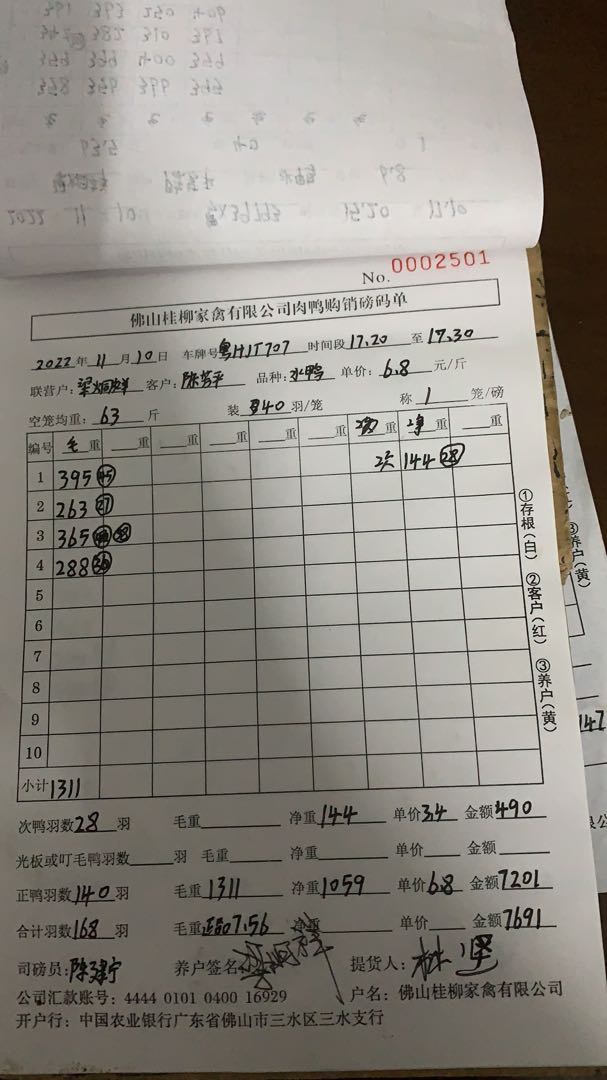 No. 0002501
佛山桂柳家禽有限公司肉鸭购销磅码单
2022年11月10日 车牌号粤HJT707 时间段17.20至17.30
联营户: 客户: 品种:水鸭 单价:6.8元/斤
空笼均重:63斤 装40羽/笼 称1笼/磅
编号 毛重 重 重 重 重 重 次重 净重 重
1 395 45 次 144 28
2 263 27
3 365 38
4 288 30
5
6
7
8
9
10
小计 1311
次鸭羽数28羽 毛重 净重144 单价3.4 金额490
光板或叮毛鸭羽数 羽 毛重 净重 单价 金额
正鸭羽数140羽 毛重1311 净重1059 单价6.8 金额7201
合计羽数168羽 毛重正品7.56 净重 单价 金额7691
司磅员: 养户签名 提货人:
公司汇款账号:4444 0101 0400 16929 户名:佛山桂柳家禽有限公司
开户行:中国农业银行广东省佛山市三水区三水支行
①存根(白) ②客户(红) ③养户(黄)
③养户(黄)
147